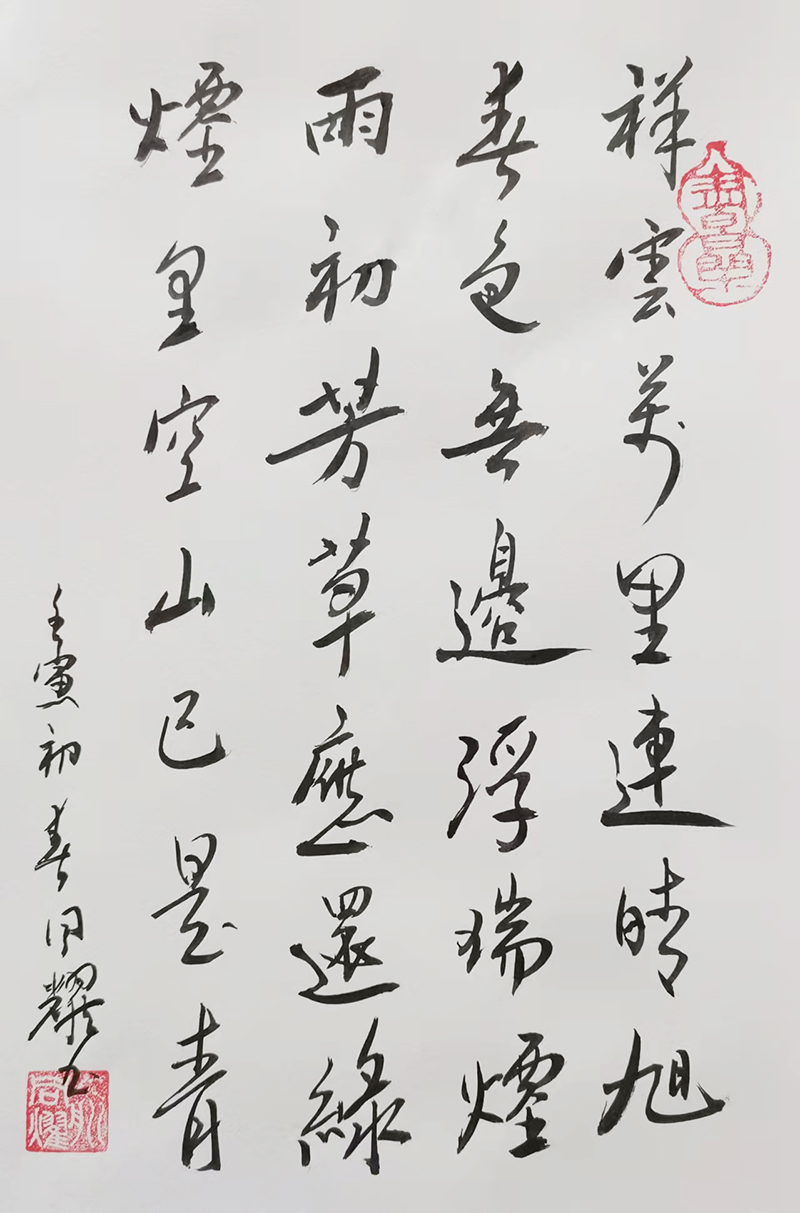 祥雲萬里連晴旭
春色無邊浮瑞煙
雨初芳草應還綠
煙里空山已是青
壬寅初春同耀书